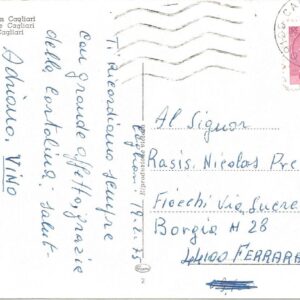 Cagliari
Cagliari
Cagliari
Ti Ricordiamo sempre
con grande affetto, grazie
della cartolina; salut-
Adriano, VINO
Cagliari 19.2.75
Al Signor
Rasis. Nicolas Pre
Fiocchi Via Sucre
Borgia N 28
44100 FERRARA
2